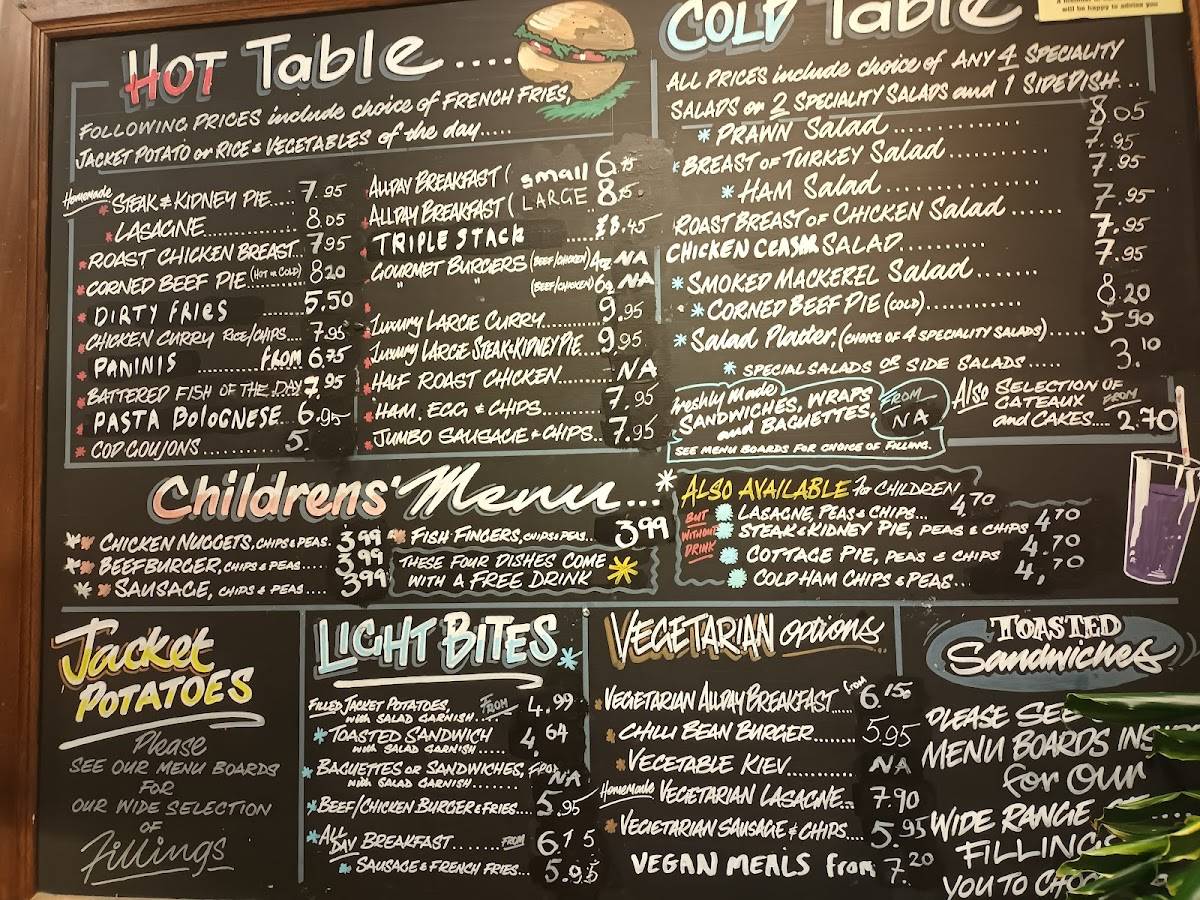 HOT Table....
FOLLOWING PRICES include choice of FRENCH FRIES,
JACKET POTATO or RICE & VEGETABLES of the day.....
Homemade STEAK & KIDNEY PIE.... 7.95
LASAGNE............ 8.05
ROAST CHICKEN BREAST... 7.95
CORNED BEEF PIE (HOT or COLD) 8.20
DIRTY FRIES ........... 5.50
CHICKEN CURRY RICE/CHIPS.... 7.95
PANINIS ...... FROM 6.75
BATTERED FISH OF THE DAY 7.95
PASTA BOLOGNESE.. 6.95
COD GOUJONS .......... 5.
ALLDAY BREAKFAST ( small 6.
ALLDAY BREAKFAST ( LARGE 8.
TRIPLE STACK ..... £8.45
GOURMET BURGERS (BEEF/CHICKEN) 4oz NA
" " (BEEF/CHICKEN) 6oz NA
Luxury LARGE CURRY........ 9.95
Luxury LARGE STEAK & KIDNEY PIE... 9.95
HALF ROAST CHICKEN........ NA
HAM, EGG & CHIPS.......... 7.95
JUMBO SAUSAGE & CHIPS.. 7.95
COLD Table.
will be happy to advise you
ALL PRICES include choice of ANY 4 SPECIALITY
SALADS or 2 SPECIALITY SALADS and 1 SIDEDISH...
PRAWN Salad.............. 8.05
BREAST OF TURKEY Salad........... 7.95
HAM Salad................ 7.95
ROAST BREAST OF CHICKEN Salad...... 7.95
CHICKEN CEASAR SALAD.......... 7.95
SMOKED MACKEREL Salad....... 7.95
CORNED BEEF PIE (COLD)............ 8.20
Salad Platter. (CHOICE OF 4 SPECIALITY SALADS).... 5.90
SPECIAL SALADS OR SIDE SALADS ..... 3.10
Freshly Made
SANDWICHES, WRAPS
and BAGUETTES. FROM NA
SEE MENU BOARDS FOR CHOICE OF FILLING.
Also SELECTION OF
GATEAUX FROM
and CAKES.... 2.70
Childrens' Menu....
CHICKEN NUGGETS, CHIPS & PEAS. 3.99
BEEFBURGER, CHIPS & PEAS.... 3.99
SAUSAGE, CHIPS & PEAS .... 3.99
FISH FINGERS, CHIPS & PEAS... 3.99
THESE FOUR DISHES COME
WITH A FREE DRINK
ALSO AVAILABLE for CHILDREN
BUT WITHOUT DRINK
LASAGNE, PEAS & CHIPS.... 4.70
STEAK & KIDNEY PIE, PEAS & CHIPS 4.70
COTTAGE PIE, PEAS & CHIPS 4.70
COLD HAM CHIPS & PEAS... 4.70
Jacket
POTATOES
Please
SEE OUR MENU BOARDS
FOR
OUR WIDE SELECTION
OF
Fillings
LIGHT BITES
FILLED JACKET POTATOES,
with SALAD GARNISH... FROM 4.99
TOASTED SANDWICH
with SALAD GARNISH ..... 4.64
BAGUETTES OR SANDWICHES, FROM
with SALAD GARNISH....... NA
BEEF/CHICKEN BURGER & FRIES... 5.95
ALL DAY BREAKFAST....... FROM 6.15
SAUSAGE & FRENCH FRIES... 5.95
VEGETARIAN options
VEGETARIAN ALLDAY BREAKFAST.... from 6.
CHILLI BEAN BURGER....... 5.95
VEGETABLE KIEV............ NA
Homemade VEGETARIAN LASAGNE... 7.90
VEGETARIAN SAUSAGE & CHIPS.... 5.95
VEGAN MEALS from 7.20
TOASTED
Sandwiches
PLEASE SEE
MENU BOARDS INS
for OUR
WIDE RANGE
FILLING
YOU TO CHO